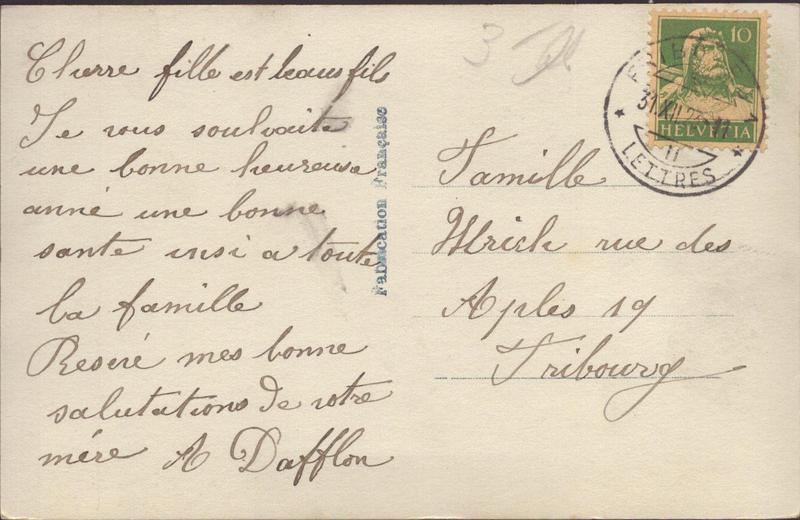 Cherre fille est beaus fil
Je vous souhaite
une bonne heureuse
anné une bonne
sante insi a toute
la famille
Reseré mes bonne
salutations de votre
mére A Dafflon
Fabrication Française
3
10
HELVETIA
31.XII.
11
LETTRES
Famille
Ulrich rue des
Aples 19
Fribourg